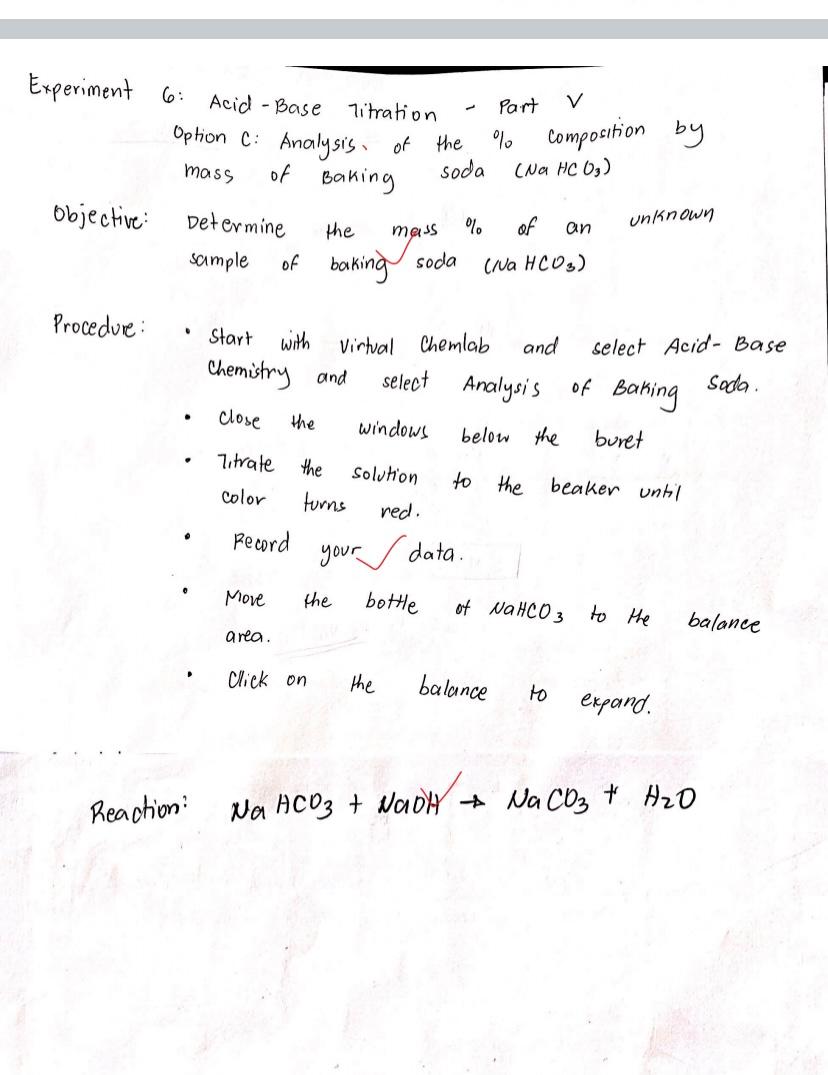 Experiment 6: Acid-Base Titration - Part V
Option C: Analysis of the % Composition by
mass of Baking soda (NaHCO3)
Objective: Determine the mass % of an unknown
sample of baking soda (NaHCO3)
Procedure: • Start with Virtual Chemlab and select Acid-Base
Chemistry and select Analysis of Baking Soda.
• Close the windows below the buret
• Titrate the solution to the beaker until
color turns red.
• Record your data.
• Move the bottle of NaHCO3 to the balance
area.
• Click on the balance to expand.
Reaction: NaHCO3 + NaOH → NaCO3 + H2O